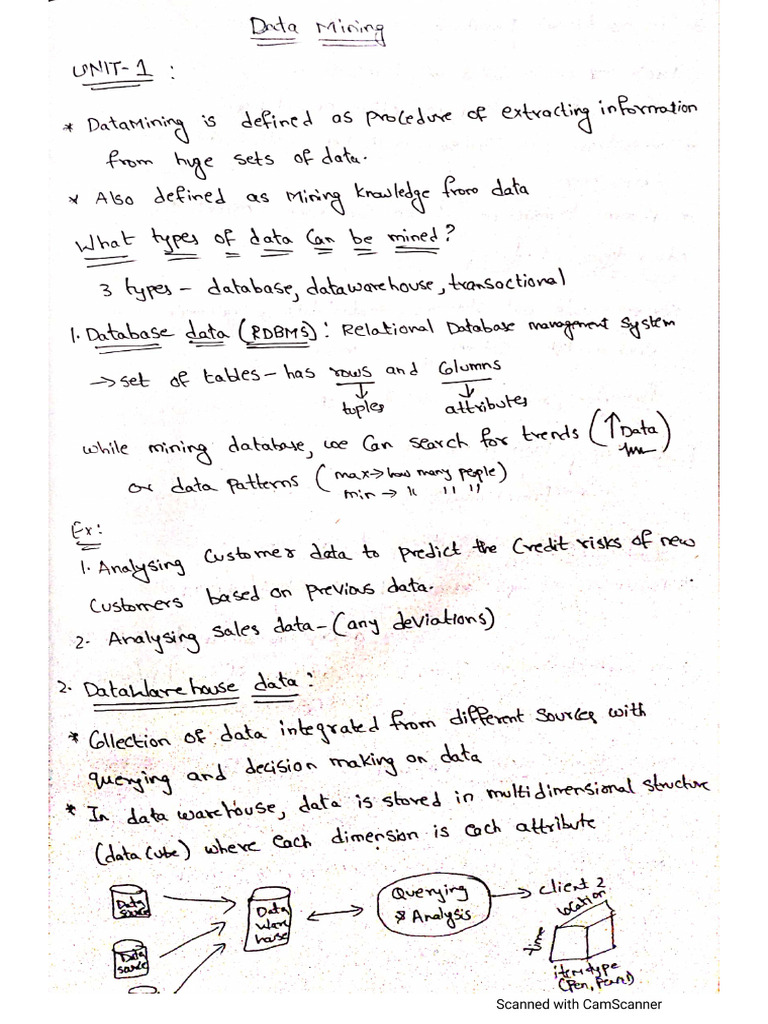 Data Mining
UNIT-1 :
* DataMining is defined as procedure of extracting information
from huge sets of data.
* Also defined as Mining knowledge from data
What types of data can be mined?
3 types - database, datawarehouse, transactional
1. Database data (RDBMS): Relational Database management System
→ set of tables - has rows and Columns
↓ ↓
tuples attributes
while mining database, we can search for trends (↑Data)
or data patterns (max→how many people)
min → " " "
Ex:
1. Analysing Customer data to predict the Credit risks of new
Customers based on previous data.
2. Analysing sales data - (any deviations)
2. DataWarehouse data:
* Collection of data integrated from different sources with
querying and decision making on data
* In data warehouse, data is stored in multidimensional structure
(data cube) where each dimension is each attribute
Data
source
Data
source
Data
ware
house
Querying
& Analysis
client 2
location
time
item type
(Pen,
Scanned with CamScanner